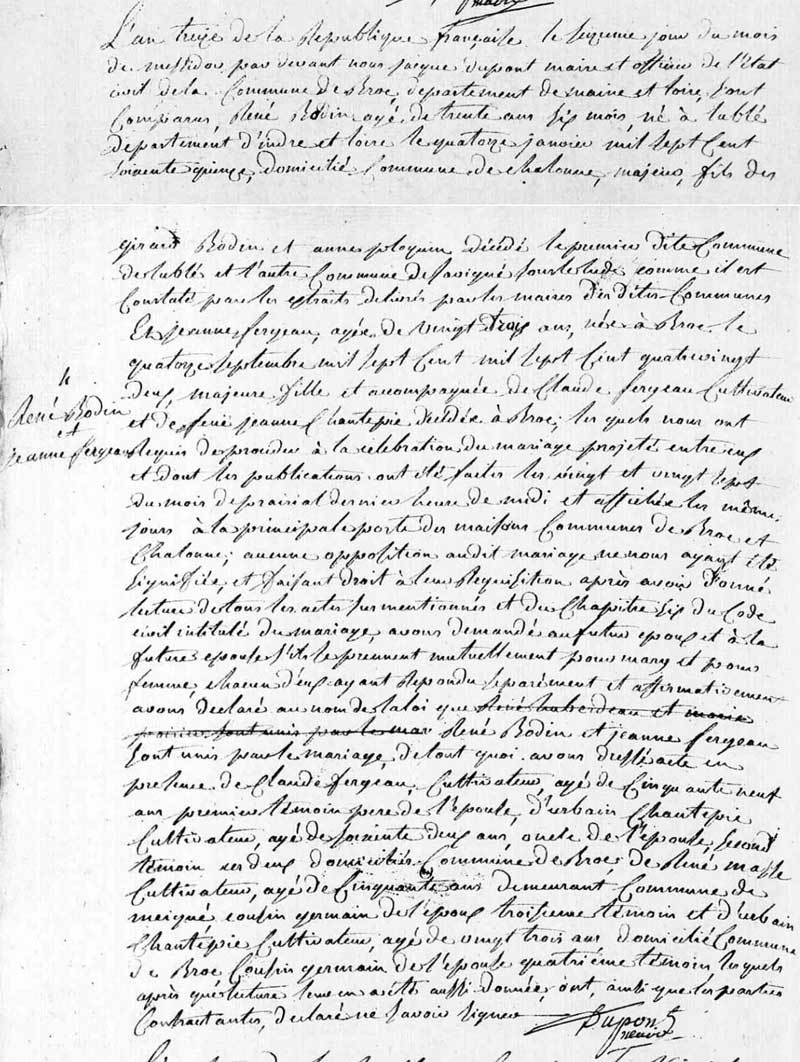 maire
L'an treize de la Republique française le sizieme jour du mois
de messidor par devant nous jacque dupont maire et officier de l'état
civil de la Commune de Broc, departement de maine et loire, sont
Comparus, René Bodin agé de trente ans six mois, né à lublé
departement d'indre et loire le quatorze janvier mil sept Cent
soixante quinze, domicilié Commune de Chalonne, majeur, fils des
girard Bodin et anne ploquin décédé le premier dite Commune
de lublé et l'autre Commune de savigné sous le lude comme il est
Constaté par les extraits delivrés par les maires des dites Communes
Et jeanne fergeau, agée de vingt trois ans, née à Broc le
quatorze septembre mil sept Cent mil sept Cent quatrevingt
deux, majeure fille et acompagnée de Claude fergeau Cultivateur
et de feüe jeanne Chantepie decédée à Broc; les quels nous ont
Requis de proceder à la célébration du mariage projeté entre eux
et dont les publications ont été faites les vingt et vingt sept
du mois de prairial dernier heure de midi et affichée les même
jours à la principale porte des maisons Communes de Broc et
Chalonne; aucune opposition audit mariage ne nous ayant été
signifiée, et faisant droit à leur Requisition après avoir donné
lecture de tous les actes sur mentionnés et du Chapitre six du Code
civil intitulé du mariage, avons demandé au futur epoux et à la
future epouse s'ils se prennent mutuellement pour mary et pour
femme, chacun d'eux ayant Repondu separément et affirmativement
avons declaré au nom de la loi que René huberdeau et marie
sont unis par le mar René Bodin et jeanne fergeau
sont unis par le mariage, de tout quoi avons dressé acte en
presence de Claude fergeau, Cultivateur, agé de Cinquante neuf
ans premier témoin pere de l'épouse, d'urbain Chantepie
Cultivateur, agé de soixante deux ans oncle de l'épouse, second
témoin ses deux domiciliés Commune de Broc, de René masle
Cultivateur, agé de Cinquante ans demeurant Commune de
meigné cousin germain de l'époux troisieme témoin et d'urbain
Chantépie Cultivateur, agé de vingt trois ans domicilié Commune
de Broc Cousin germain de l'épouse quatriéme témoin lesquels
après que lecture leur en a été aussi donnée, ont, ainsi que les parties
Contractantes, declaré ne savoir signer
Dupont
maire
4
René Bodin
et
jeanne fergeau